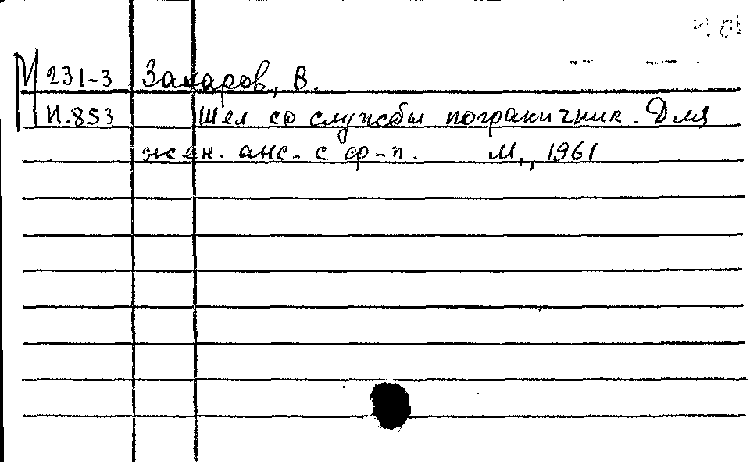 М 231-3 Захаров, В.
И.853 Шел со службы пограничник. Для
жен. анс. с ф-п. М., 1961